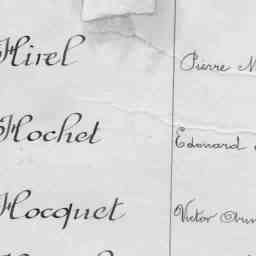 Hirel Pierre
Hochet Edouard
Hocquet Victor